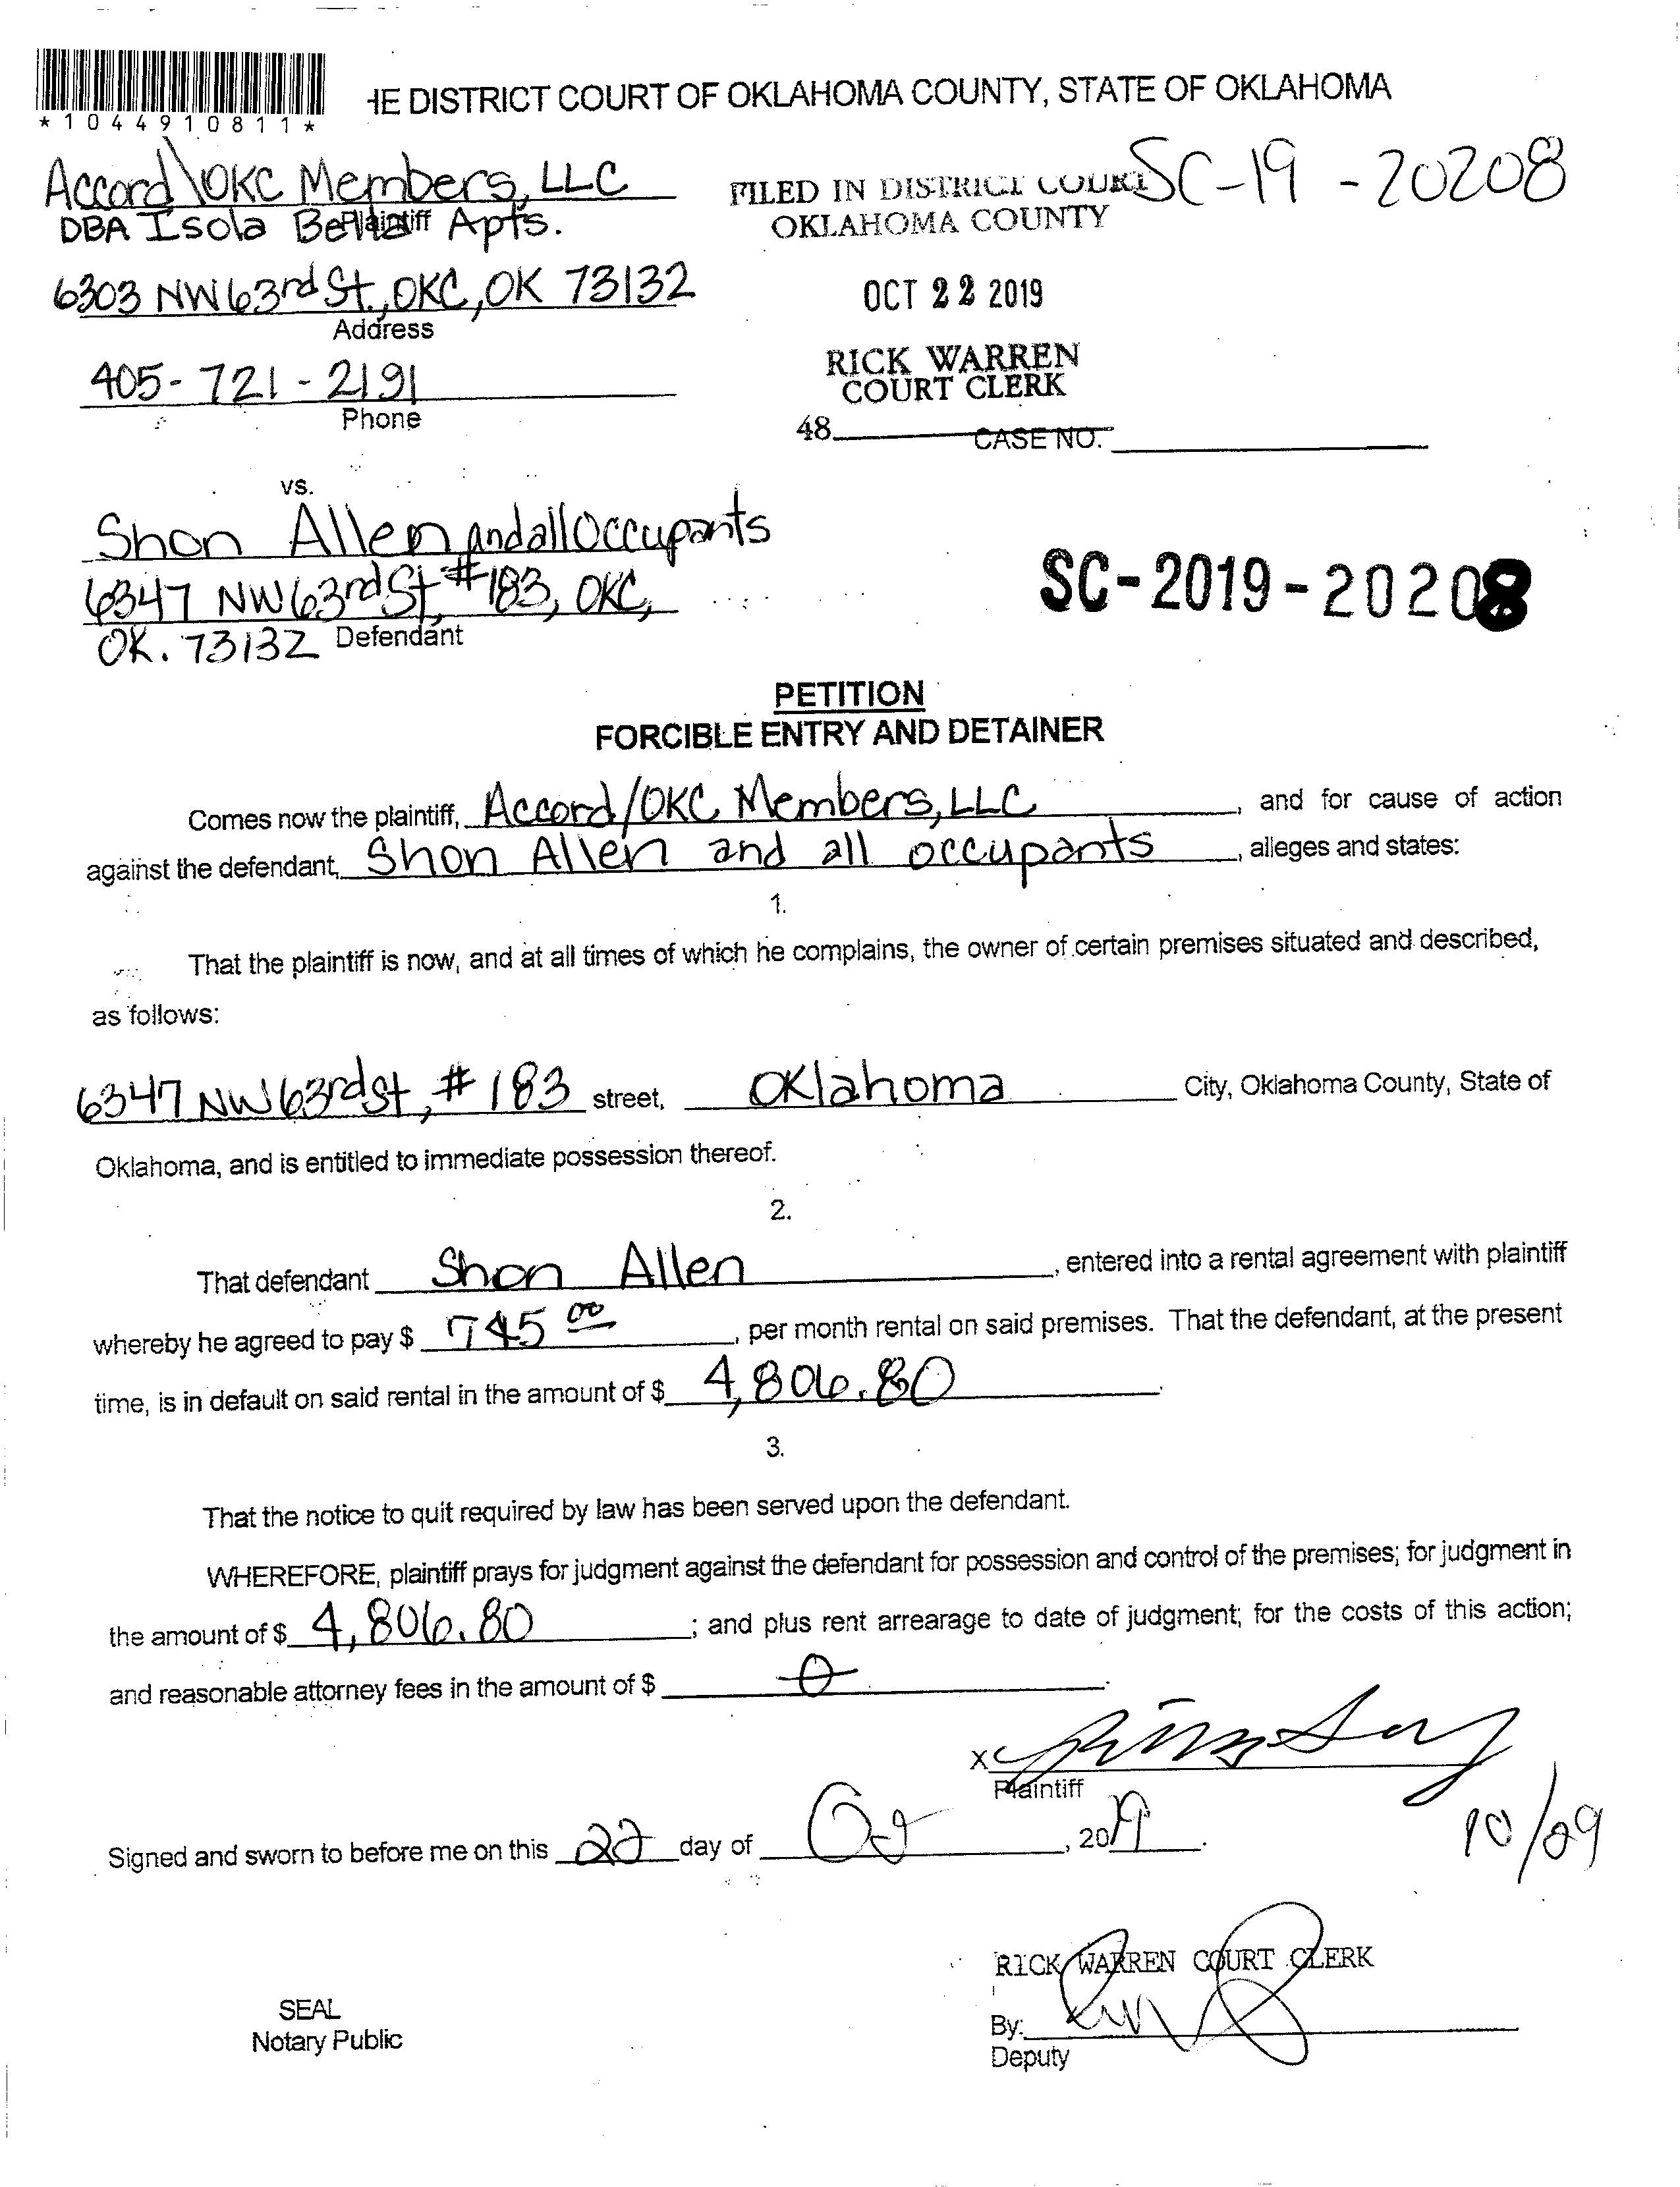 *1044910811*
HE DISTRICT COURT OF OKLAHOMA COUNTY, STATE OF OKLAHOMA
SC-19-20208
Accord\OKC Members, LLC
DBA Isola Bella Apts.
Plaintiff
6303 NW 63rd St., OKC, OK 73132
Address
405-721-2191
Phone
FILED IN DISTRICT COURT
OKLAHOMA COUNTY
OCT 22 2019
RICK WARREN
COURT CLERK
48
CASE NO.
vs.
Shon Allen and all Occupants
6347 NW 63rd St, #183, OKC,
OK. 73132 Defendant
SC-2019-20208
PETITION
FORCIBLE ENTRY AND DETAINER
Comes now the plaintiff, Accord/OKC Members, LLC, and for cause of action
against the defendant, Shon Allen and all occupants, alleges and states:
1.
That the plaintiff is now, and at all times of which he complains, the owner of certain premises situated and described,
as follows:
6347 NW 63rd St, #183 street, Oklahoma City, Oklahoma County, State of
Oklahoma, and is entitled to immediate possession thereof.
2.
That defendant Shon Allen, entered into a rental agreement with plaintiff
whereby he agreed to pay $ 745 00, per month rental on said premises. That the defendant, at the present
time, is in default on said rental in the amount of $ 4,806.80.
3.
That the notice to quit required by law has been served upon the defendant.
WHEREFORE, plaintiff prays for judgment against the defendant for possession and control of the premises; for judgment in
the amount of $ 4,806.80; and plus rent arrearage to date of judgment; for the costs of this action;
and reasonable attorney fees in the amount of $ 0.
X
Plaintiff
Signed and sworn to before me on this 22 day of Oct, 2019.
10/09
RICK WARREN COURT CLERK
SEAL
Notary Public
By:
Deputy